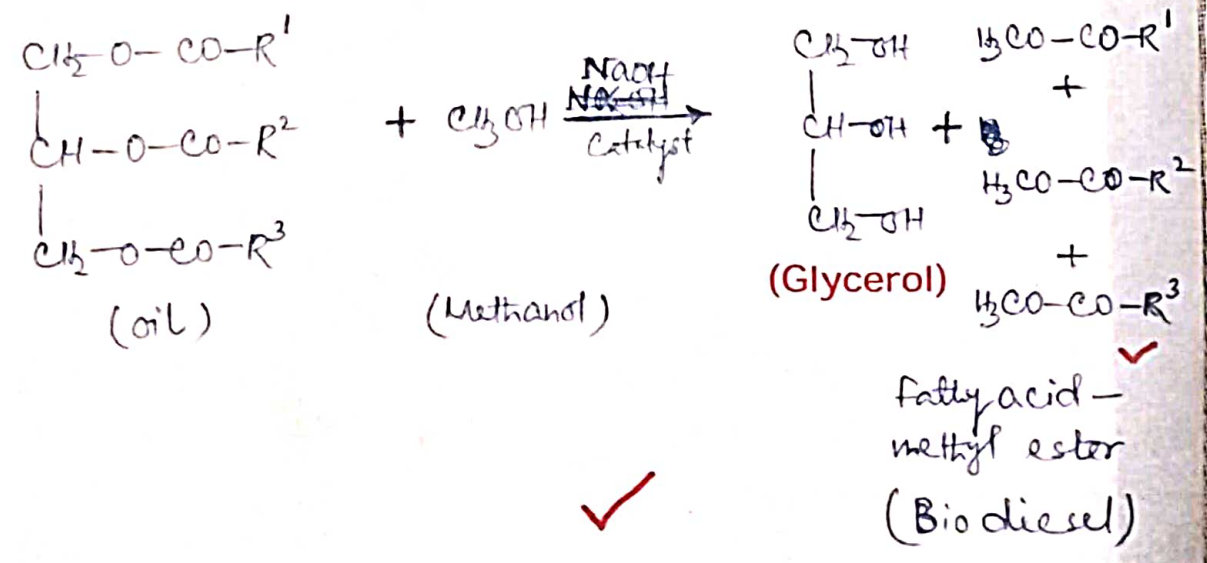 CH₂-O-CO-R¹
CH-O-CO-R²
CH₂-O-CO-R³
(oil)
+ CH₃OH
(Methanol)
NaOH
Catalyst
CH₂-OH
CH-OH +
CH₂-OH
(Glycerol)
H₃CO-CO-R¹
+
H₃CO-CO-R²
+
H₃CO-CO-R³
Fatty acid-
methyl ester
(Bio diesel)